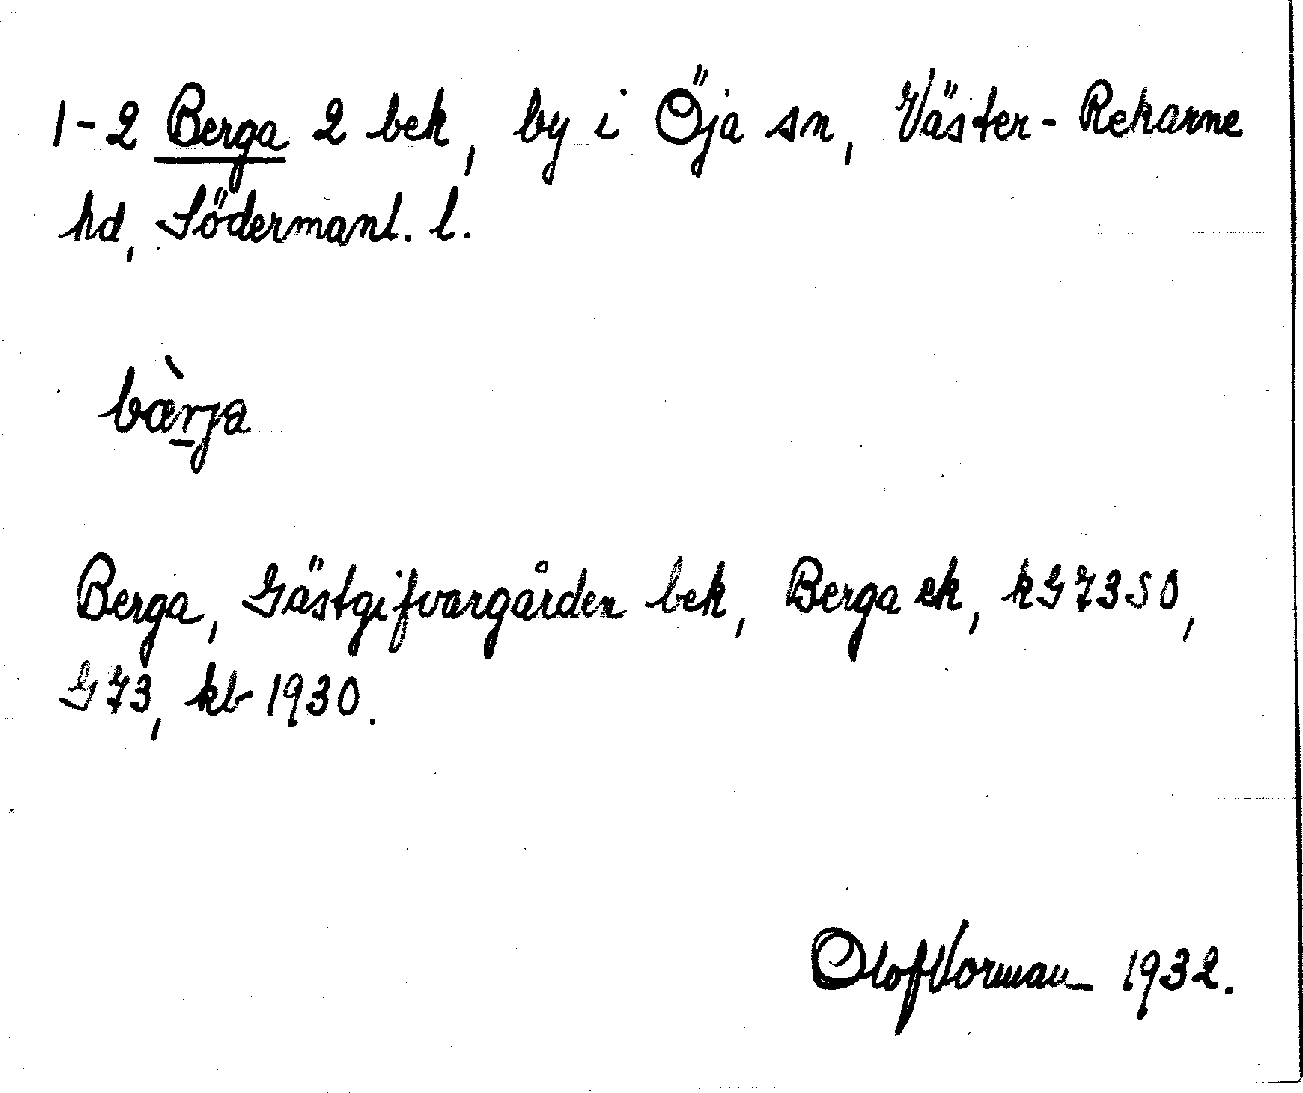 1-2 Berga 2 bek, by i Öja sn, Väster-Rekarne
hd, Södermanl. l.
bæ̀rja
Berga, Gästgifvargården bek, Berga ek, kG7350,
G73, kb 1930.
Olof Vorman 1932.